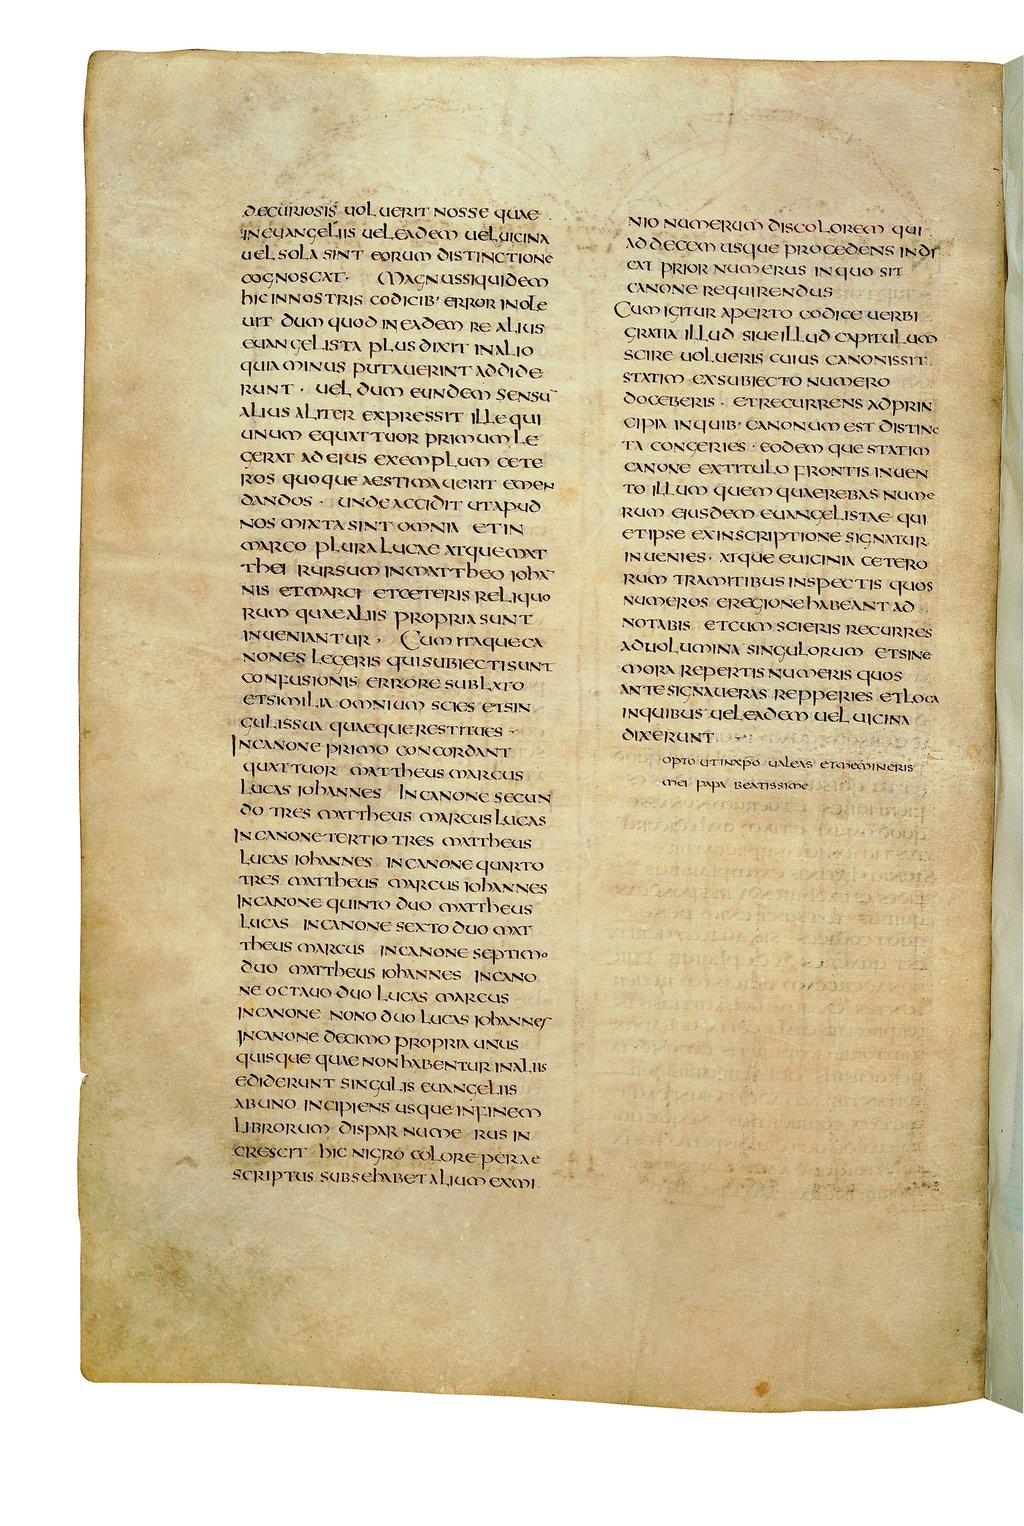 decuriosis uoluerit nosse quae
in euangeliis uel eadem uel uicina
uel sola sint eorum distinctione
cognoscat· Magnus siquidem
hic in nostris codicib' error inole
uit dum quod in eadem re alius
euangelista plus dixit in alio
quia minus putauerint addide
runt· uel dum eundem sensū
alius aliter expressit ille qui
unum e quattuor primum le
gerat ad eius exemplum cete
ros quoque aestimauerit emen
dandos· unde accidit ut apud
nos mixta sint omnia et in
marco plura lucae atque mat
thei rursum in mattheo iohā
nis et marci et ceteris reliquo
rum quae aliis propria sunt
inueniantur· Cum itaque ca
nones legeris qui subiecti sunt
confusionis errore sublato
et similia omnium scies et sin
gulis sua quaeque restitues
In canone primo concordant
quattuor mattheus marcus
lucas iohannes In canone secun
do tres mattheus marcus lucas
In canone tertio tres mattheus
lucas iohannes in canone quarto
tres mattheus marcus iohannes
In canone quinto duo mattheus
lucas in canone sexto duo mat
theus marcus in canone septimo
duo mattheus iohannes in cano
ne octauo duo lucas marcus
in canone nono duo lucas iohannes
In canone decimo propria unus
quisque quae non habentur in aliis
ediderunt singulis euangeliis
ab uno incipiens usque in finem
librorum dispar nume rus in
crescit hic nigro colore perae
scriptus sub se habet alium ex mi
nio numerum discolorem qui
ad decem usque procedens indi
cat prior numerus in quo sit
canone requirendus
Cum igitur aperto codice uerbi
gratia illud siue illud capitulum
scire uolueris cuius canonis sit
statim ex subiecto numero
doceberis· et recurrens ad prin
cipia in quib' canonum est distinc
ta congeries· eodemque statim
canone ex titulo frontis inuen
to illum quem quaerebas nume
rum eiusdem euangelistae qui
et ipse ex inscriptione signatur
inuenies· atque e uicinia cetero
rum tramitibus inspectis quos
numeros e regione habeant ad
notabis et cum scieris recurres
ad uolumina singulorum et sine
mora repertis numeris quos
ante signaueras repperies et loca
in quibus uel eadem uel uicina
dixerunt
opto ut in xpo ualeas et memineris
mei papa beatissime